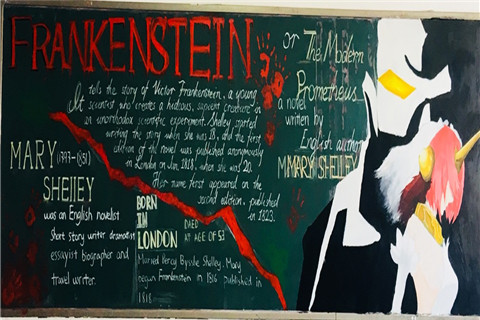 FRANKENSTEIN
or The Modern
Prometheus
a novel
written by
English author
MARY SHELLEY
It tells the story of Victor Frankenstein, a young
scientist who creates a hideous, sapient creature in
an unorthodox scientific experiment. Shelley started
writing the story when she was 18, and the first
edition of the novel was published anonymously
in London on Jan. 1818, when she was 20.
Her name first appeared on the
second edition, published
in 1823.
MARY (1797-1851)
SHELLEY
was an English novelist
short story writer dramatist
essayist biographer and
travel writer.
BORN
IN
LONDON
DAED
AT AGE OF 53
Married Percy Bysshe Shelley, Mary
began Frankenstein in 1816 published in
1818